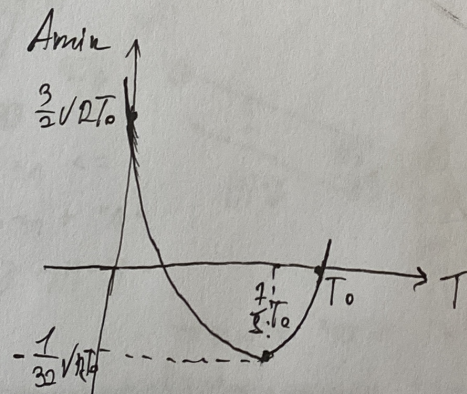 Amin
3/2 νRT₀
7/8 T₀
T₀
T
-1/32 νRT₀